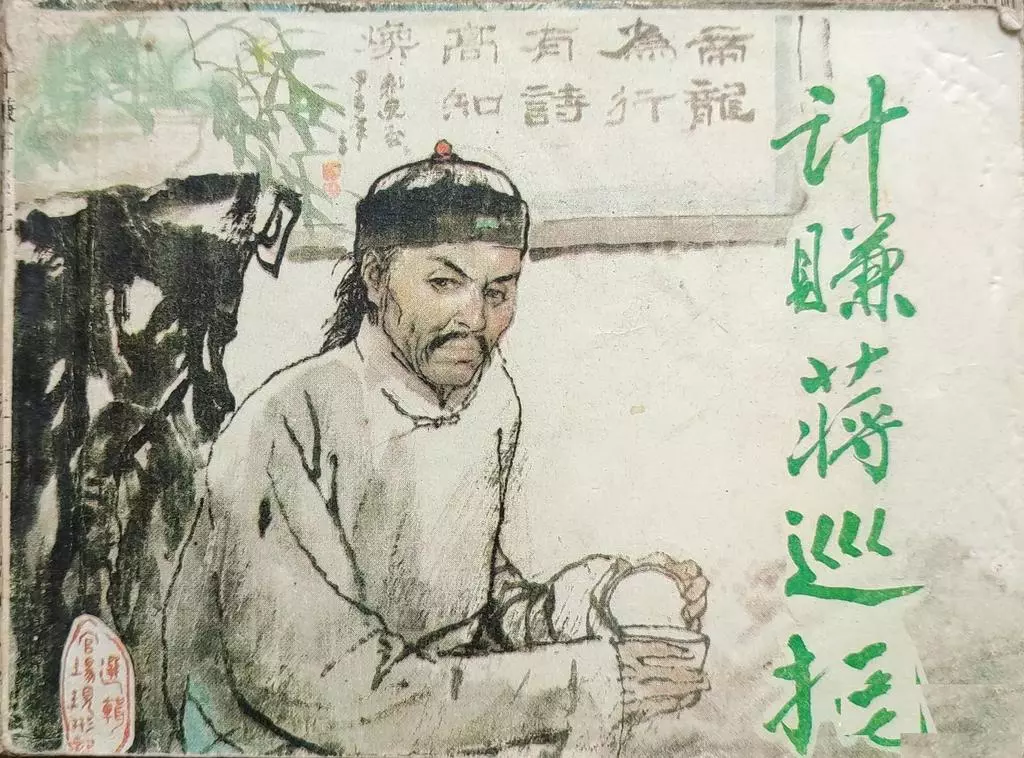 计赚蒋巡抚
龍
為行
有詩
高知
官場現形記
選輯